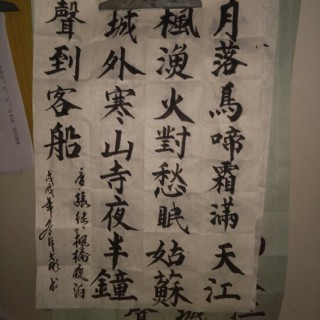 月落烏啼霜滿天江
楓漁火對愁眠姑蘇
城外寒山寺夜半鐘
聲到客船
唐張繼楓橋夜泊
戊戌年